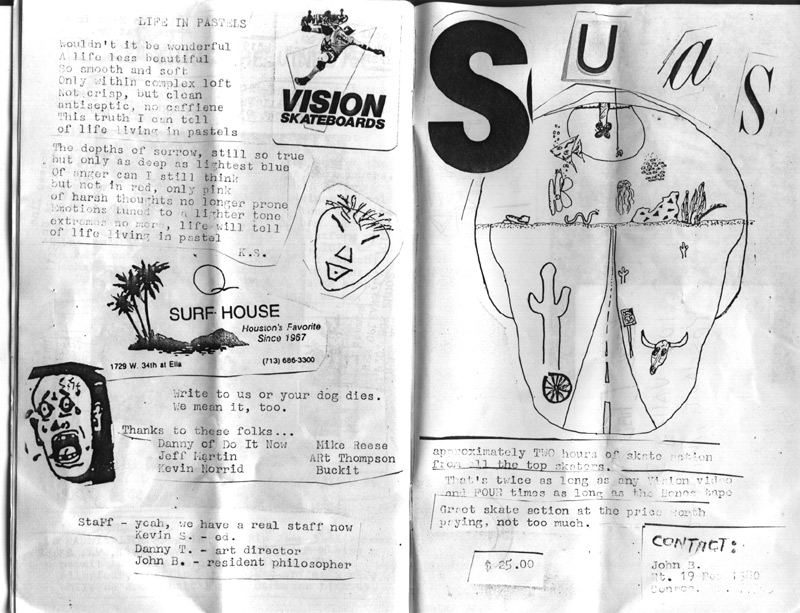 LIFE IN PASTELS
Wouldn't it be wonderful
A life less beautiful
So smooth and soft
Only within complex loft
Not crisp, but clean
antiseptic, no caffiene
This truth I can tell
of life living in pastels
The depths of sorrow, still so true
but only as deep as lightest blue
Of anger can I still think
but not in red, only pink
of harsh thoughts no longer prone
Emotions tuned to a lighter tone
extremes no more, life will tell
of life living in pastel
K.S.
VISION
SKATEBOARDS
SURF HOUSE
Houston's Favorite
Since 1967
1729 W. 34th at Ella
(713) 686-3300
Write to us or your dog dies.
We mean it, too.
Thanks to these folks...
Danny of Do It Now Mike Reese
Jeff Martin ARt Thompson
Kevin Norrid Buckit
Staff - yeah, we have a real staff now
Kevin S. - ed.
Danny T. - art director
John B. - resident philosopher
SUAS
approximately TWO hours of skate action
from all the top skaters.
That's twice as long as any Vision video
and FOUR times as long as the Bones tape
Great skate action at the price worth
paying, not too much.
$ 25.00
CONTACT:
John B.
Rt. 19
Conroe